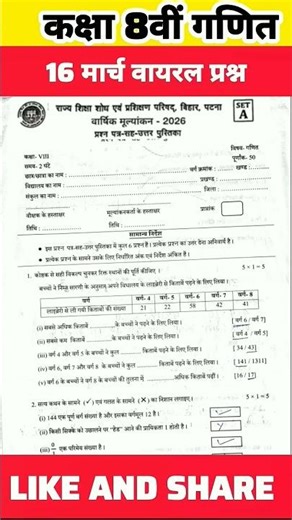 कक्षा 8वीं गणित
16 मार्च वायरल प्रश्न
राज्य शिक्षा शोध एवं प्रशिक्षण परिषद्, बिहार, पटना
वार्षिक मूल्यांकन - 2026
प्रश्न पत्र-सह-उत्तर पुस्तिका
SET
A
कक्षा- VIII
विषय- गणित
समय- 2 घंटे
पूर्णांक- 50
छात्र/छात्रा का नाम :
वर्ग क्रमांक :
खण्ड :
विद्यालय का नाम :
प्रखण्ड :
संकुल का नाम :
जिला
वीक्षक के हस्ताक्षर
मूल्यांकनकर्ता के हस्ताक्षर
प्राप्तांक
तिथि :
तिथि :
सामान्य निर्देश
• इस प्रश्न पत्र-सह-उत्तर पुस्तिका में कुल 6 प्रश्न हैं। प्रत्येक प्रश्न का उत्तर देना अनिवार्य है।
• प्रत्येक प्रश्न के सामने उसके लिए निर्धारित अंक एवं निर्देश अंकित है।
1. कोष्ठक से सही विकल्प चुनकर रिक्त स्थानों की पूर्ति कीजिए ।
5 × 1 = 5
बच्चों ने निम्न सारणी के अनुसार अपने विद्यालय के लाइब्रेरी से किताबें पढ़ने के लिए लिया।
वर्ग वर्ग- 4 वर्ग- 5 वर्ग- 6 वर्ग- 7 वर्ग- 8
लाइब्रेरी से ली गयी किताबों की संख्या 21 22 58 42 41
(i) सबसे अधिक किताबें के बच्चों ने पढ़ने के लिए लिया।
[ वर्ग 6 / वर्ग 7]
(ii) सबसे कम किताबें के बच्चों ने पढ़ने के लिए लिया।
[ वर्ग 4 / वर्ग 5]
(iii) वर्ग 4 और वर्ग 5 के बच्चों ने कुल किताबें पढ़ने के लिए लिया।
[ 34 / 43]
(iv) वर्ग 6, वर्ग 7 और वर्ग 8 के बच्चों ने कुल किताबें पढ़ने के लिए लिया।
[ 141 / 131]
(v) वर्ग 6 के बच्चों ने वर्ग 8 के बच्चों की तुलना में अधिक किताबें पढ़ीं ।
[16 / 17]
2. सत्य कथन के सामने (✓) एवं गलत के सामने (✗) का निशान लगाइए।
5 × 1 = 5
(i) 144 एक पूर्ण वर्ग संख्या है और इसका वर्गमूल 12 है।
(ii) किसी सिक्के को उछालने पर "हेड" आने की प्रायिकता 1 होती है।
(iii) एक परिमेय संख्या है।
LIKE AND SHARE